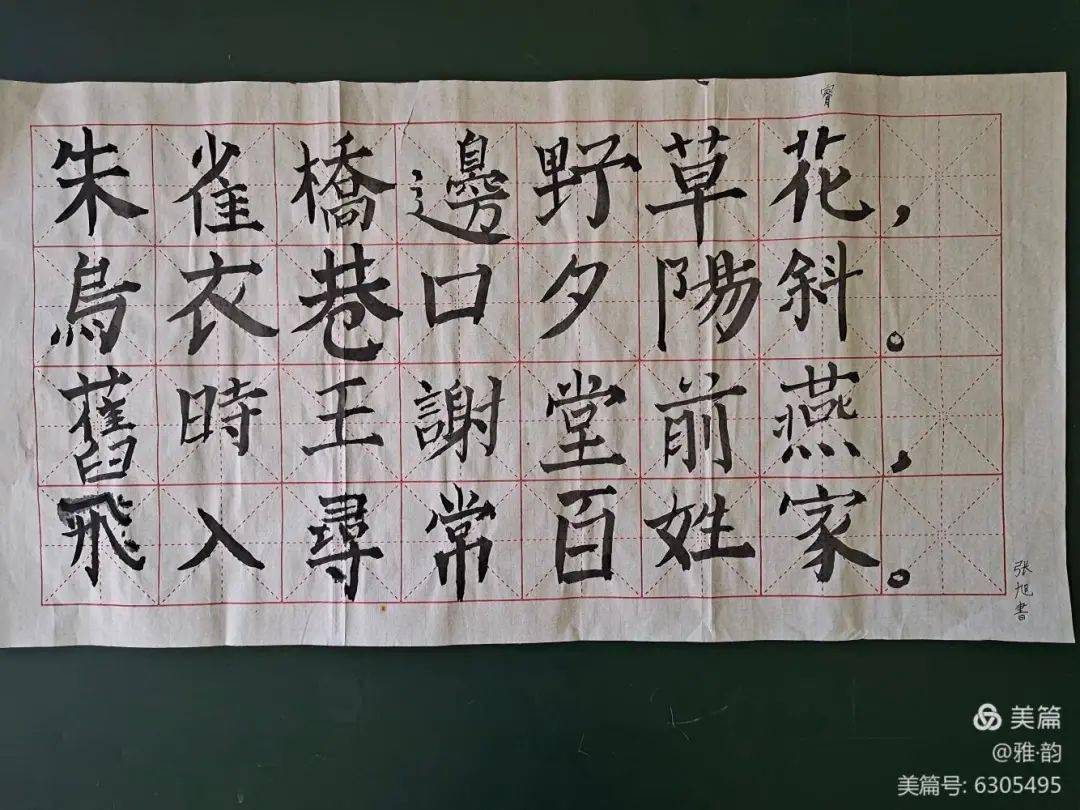 朱雀橋邊野草花，
烏衣巷口夕陽斜。
舊時王謝堂前燕，
飛入尋常百姓家。
张旭書
美篇
@雅·韵
美篇号: 6305495